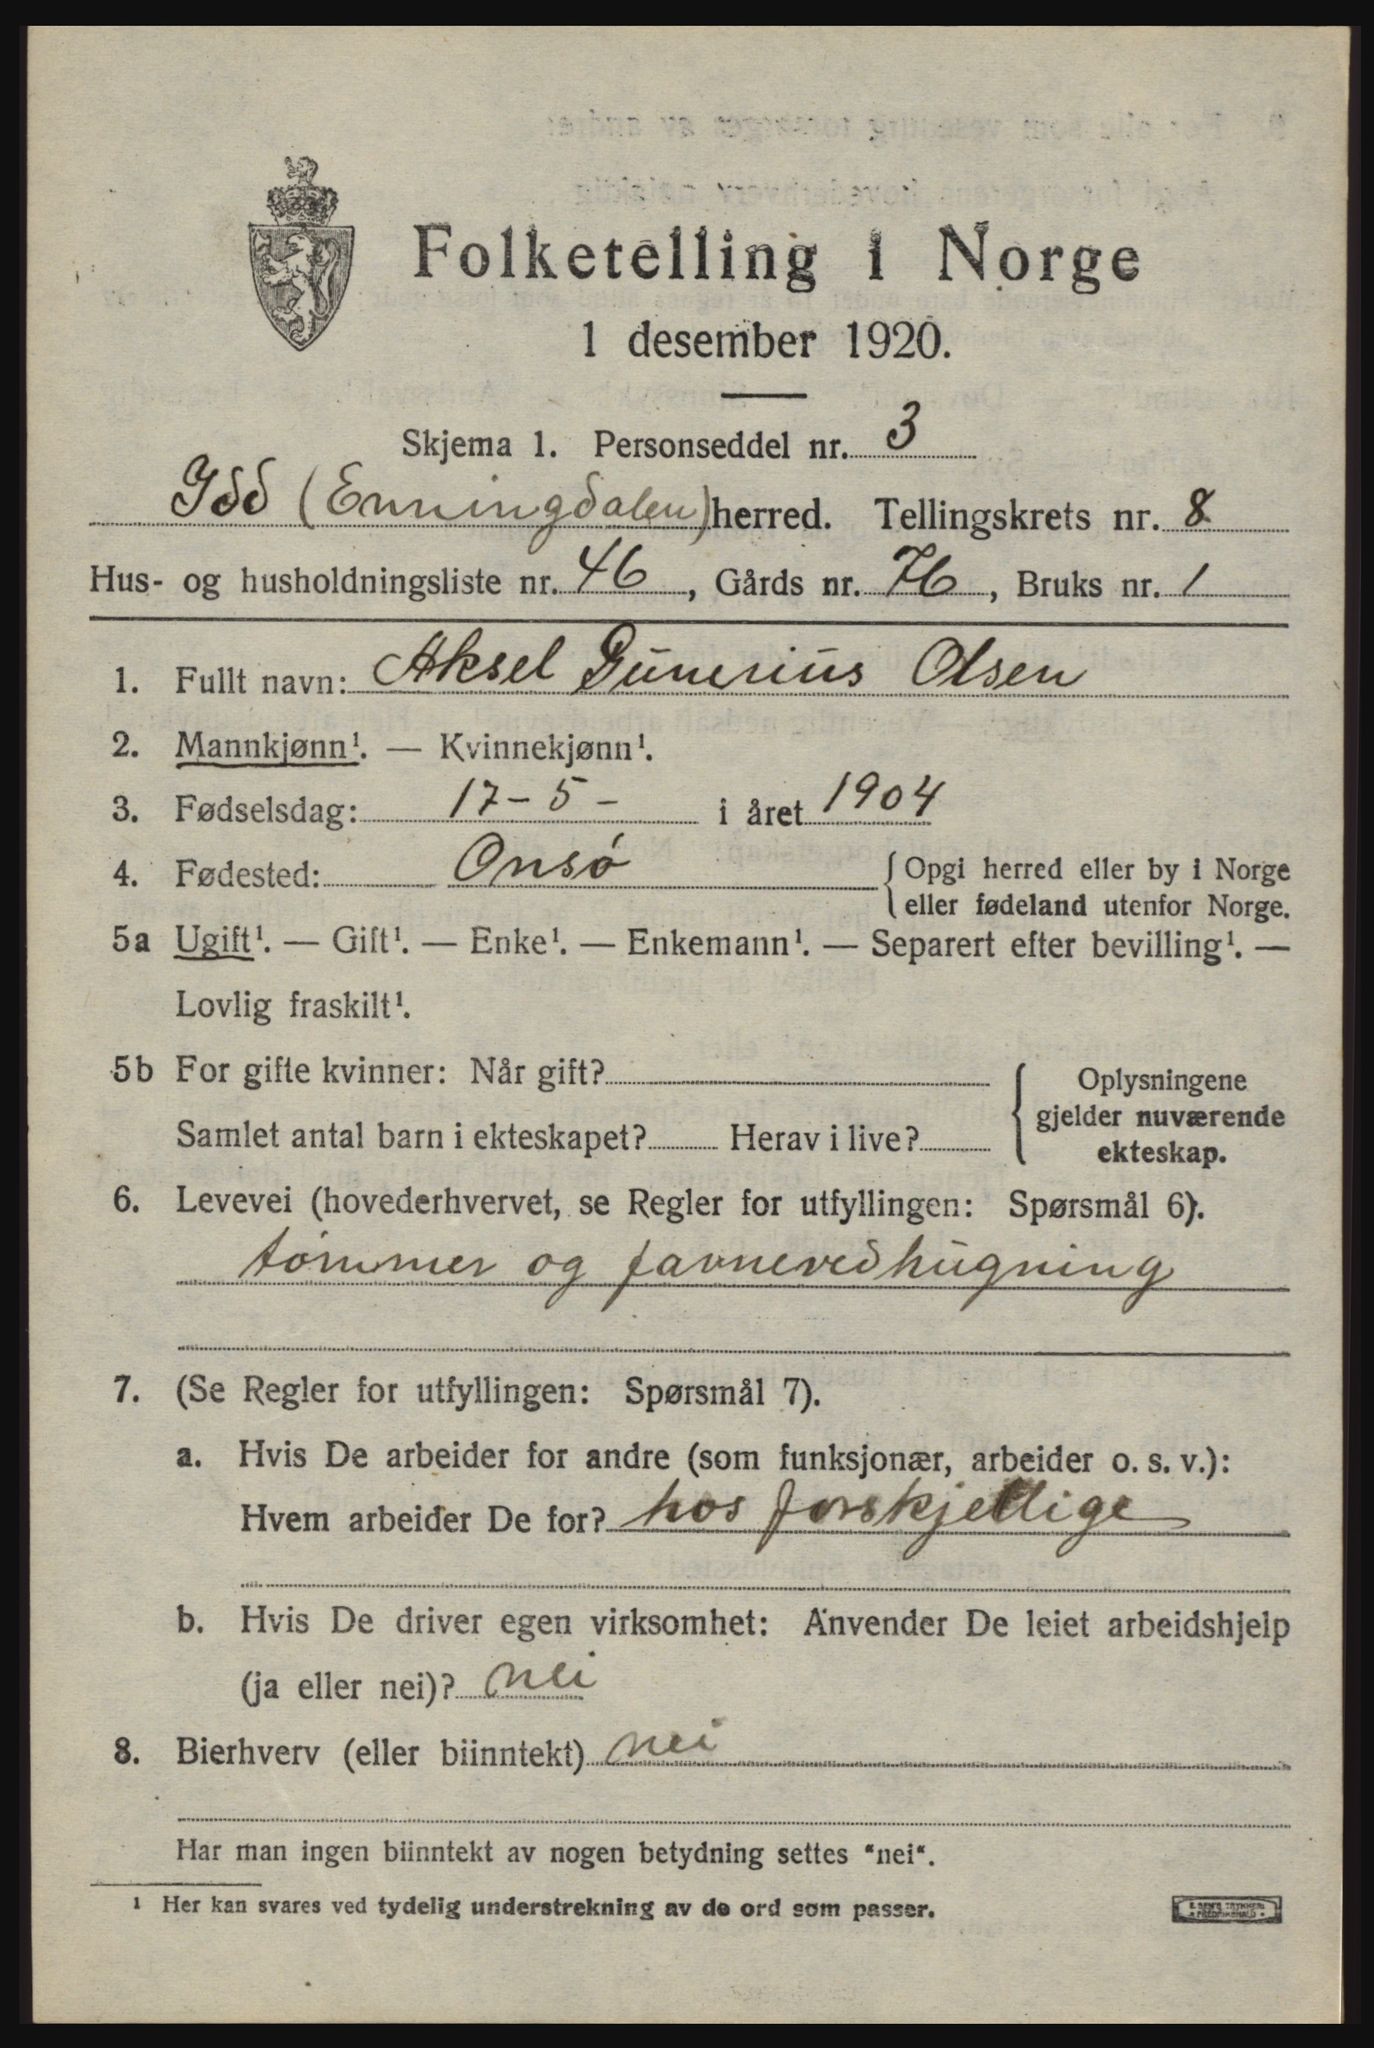 Folketelling i Norge
1 desember 1920.
Skjema 1. Personseddel nr. 3
Idd (Enningdalen) herred. Tellingskrets nr. 8
Hus- og husholdningsliste nr. 46, Gårds nr. 76, Bruks nr. 1
1. Fullt navn: Aksel Gunerius Olsen
2. Mannkjønn¹. — Kvinnekjønn¹.
3. Fødselsdag: 17-5- i året 1904
4. Fødested: Onsø {Opgi herred eller by i Norge
eller fødeland utenfor Norge.
5a Ugift¹. — Gift¹. — Enke¹. — Enkemann¹. — Separert efter bevilling¹. —
Lovlig fraskilt¹.
5b For gifte kvinner: Når gift?
Samlet antal barn i ekteskapet? Herav i live?
{Oplysningene
gjelder nuværende
ekteskap.
6. Levevei (hovederhvervet, se Regler for utfyllingen: Spørsmål 6).
tømmer og favnevedhugning
7. (Se Regler for utfyllingen: Spørsmål 7).
a. Hvis De arbeider for andre (som funksjonær, arbeider o. s. v.):
Hvem arbeider De for? hos forskjellige
b. Hvis De driver egen virksomhet: Anvender De leiet arbeidshjelp
(ja eller nei)? nei
8. Bierhverv (eller biinntekt) nei
Har man ingen biinntekt av nogen betydning settes "nei".
¹ Her kan svares ved tydelig understrekning av de ord som passer.